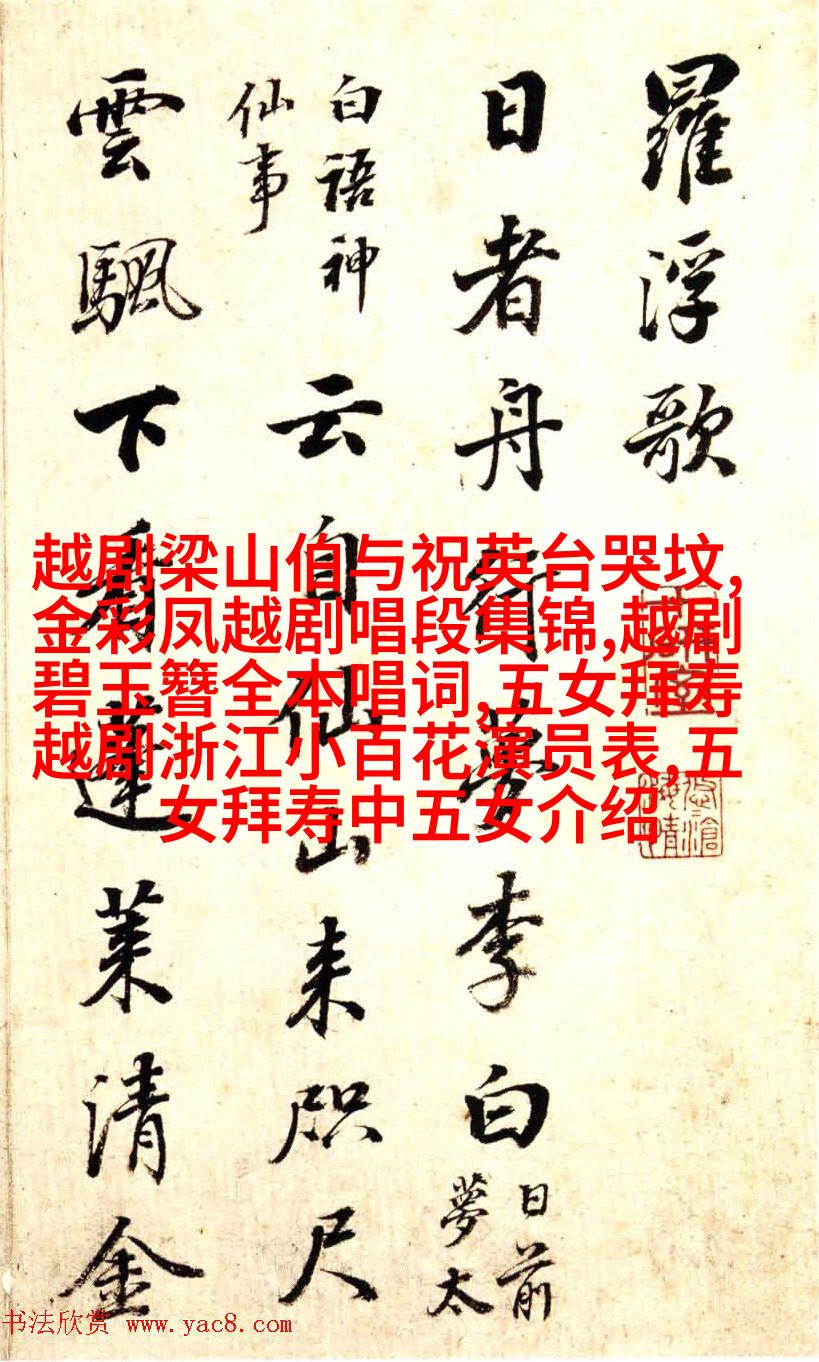 羅浮歌
日者舟行夢李白
日前
夢太
白語神
仙事
云自仙山来咫尺
雲颿下看蓬莱清金
越剧梁山伯与祝英台哭坟,
金彩凤越剧唱段集锦,越剧
碧玉簪全本唱词,五女拜寿
越剧浙江小百花演员表,五
女拜寿中五女介绍
书法欣赏 www.yac8.com